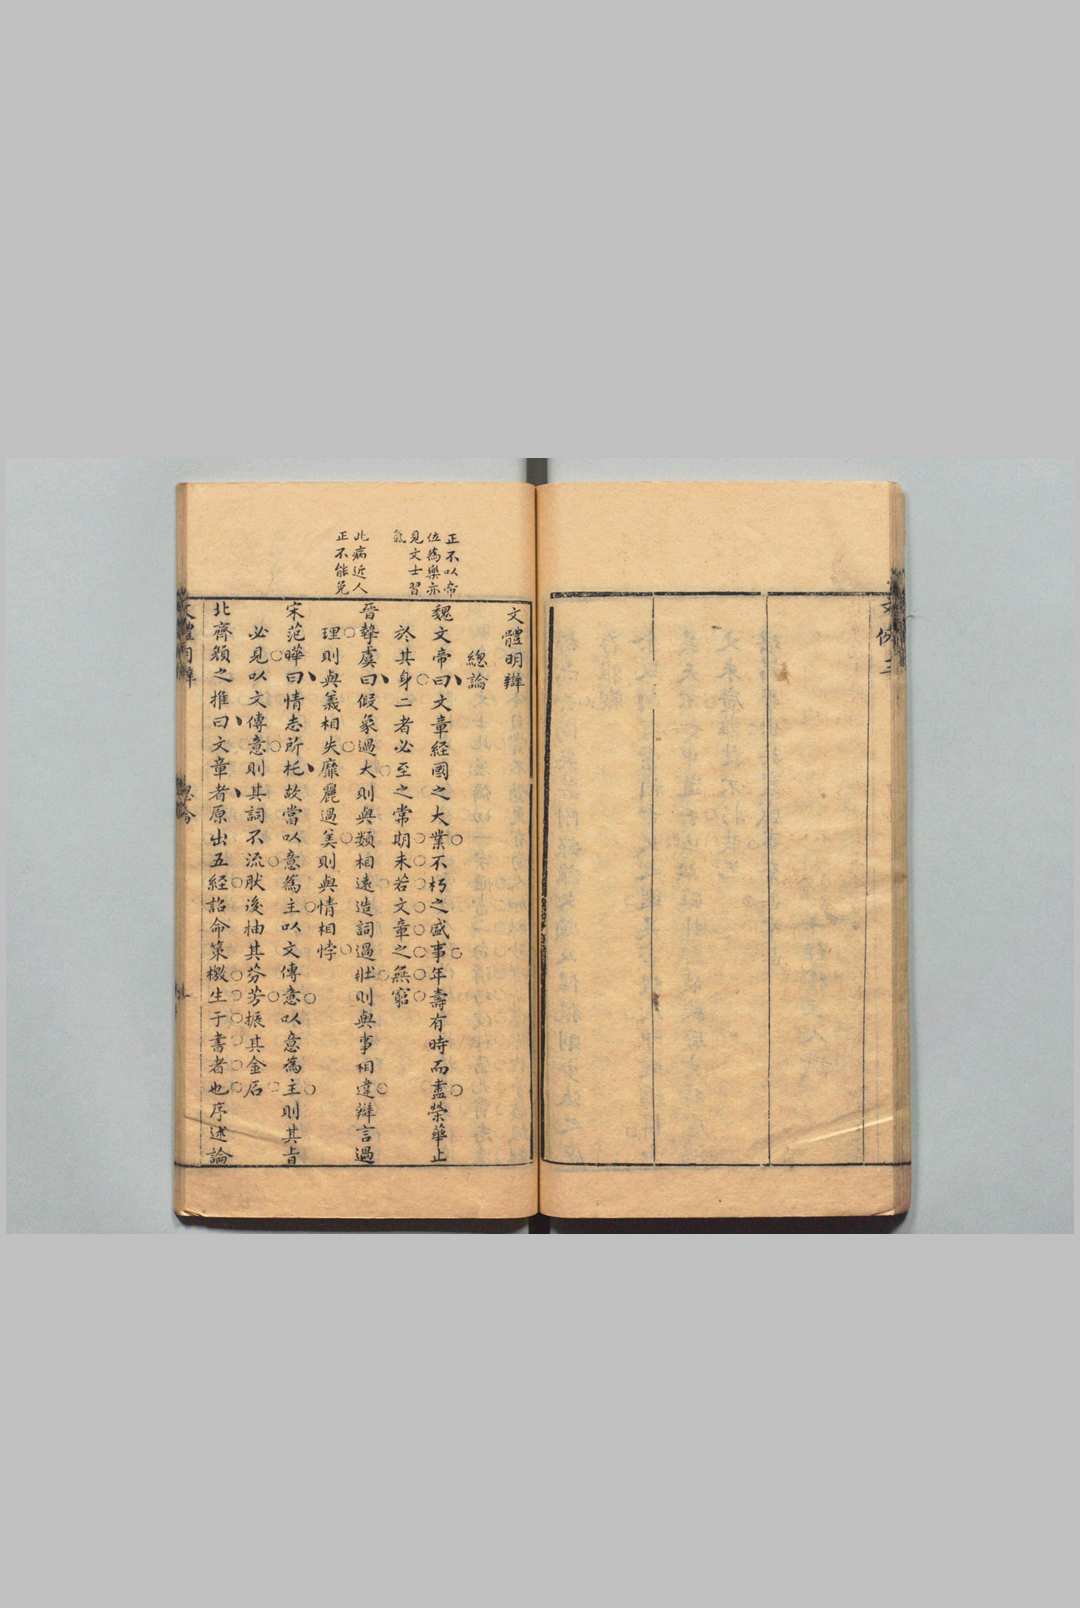 文體明辯
總論
魏文帝曰文章經國之大業不朽之盛事年壽有時而盡榮華止
於其身二者必至之常期未若文章之無窮
晉摯虞曰假象過大則與類相遠造詞過壯則與事相違辯言過
理則與義相失靡麗過美則與情相悖
宋范曄曰情志所托故當以意爲主以文傳意以意爲主則其旨
必見以文傳意則其詞不流肰後抽其芬芳振其金石
北齊顏之推曰文章者原出五經詔命策檄生于書者也序述論
正不以帝
位爲樂亦
見文士習
氣
此病近人
正不能免